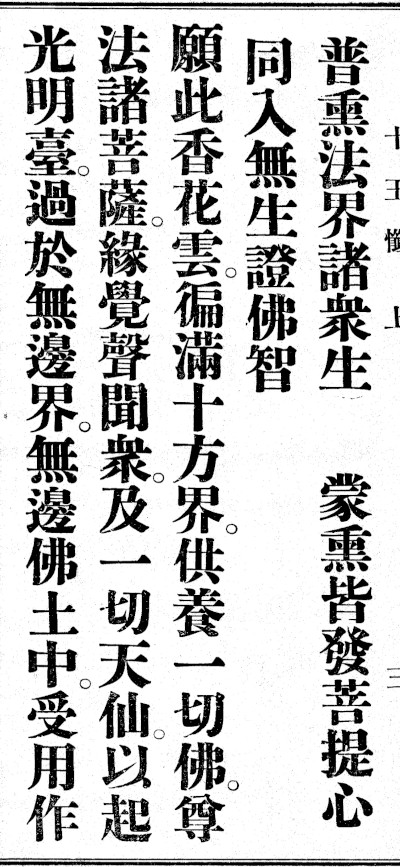 十王懺 上 三
普熏法界諸衆生 蒙熏皆發菩提心
同入無生證佛智
願此香花雲。徧滿十方界。供養一切佛。尊
法諸菩薩。緣覺聲聞衆。及一切天仙。以起
光明臺。過於無邊界。無邊佛土中。受用作